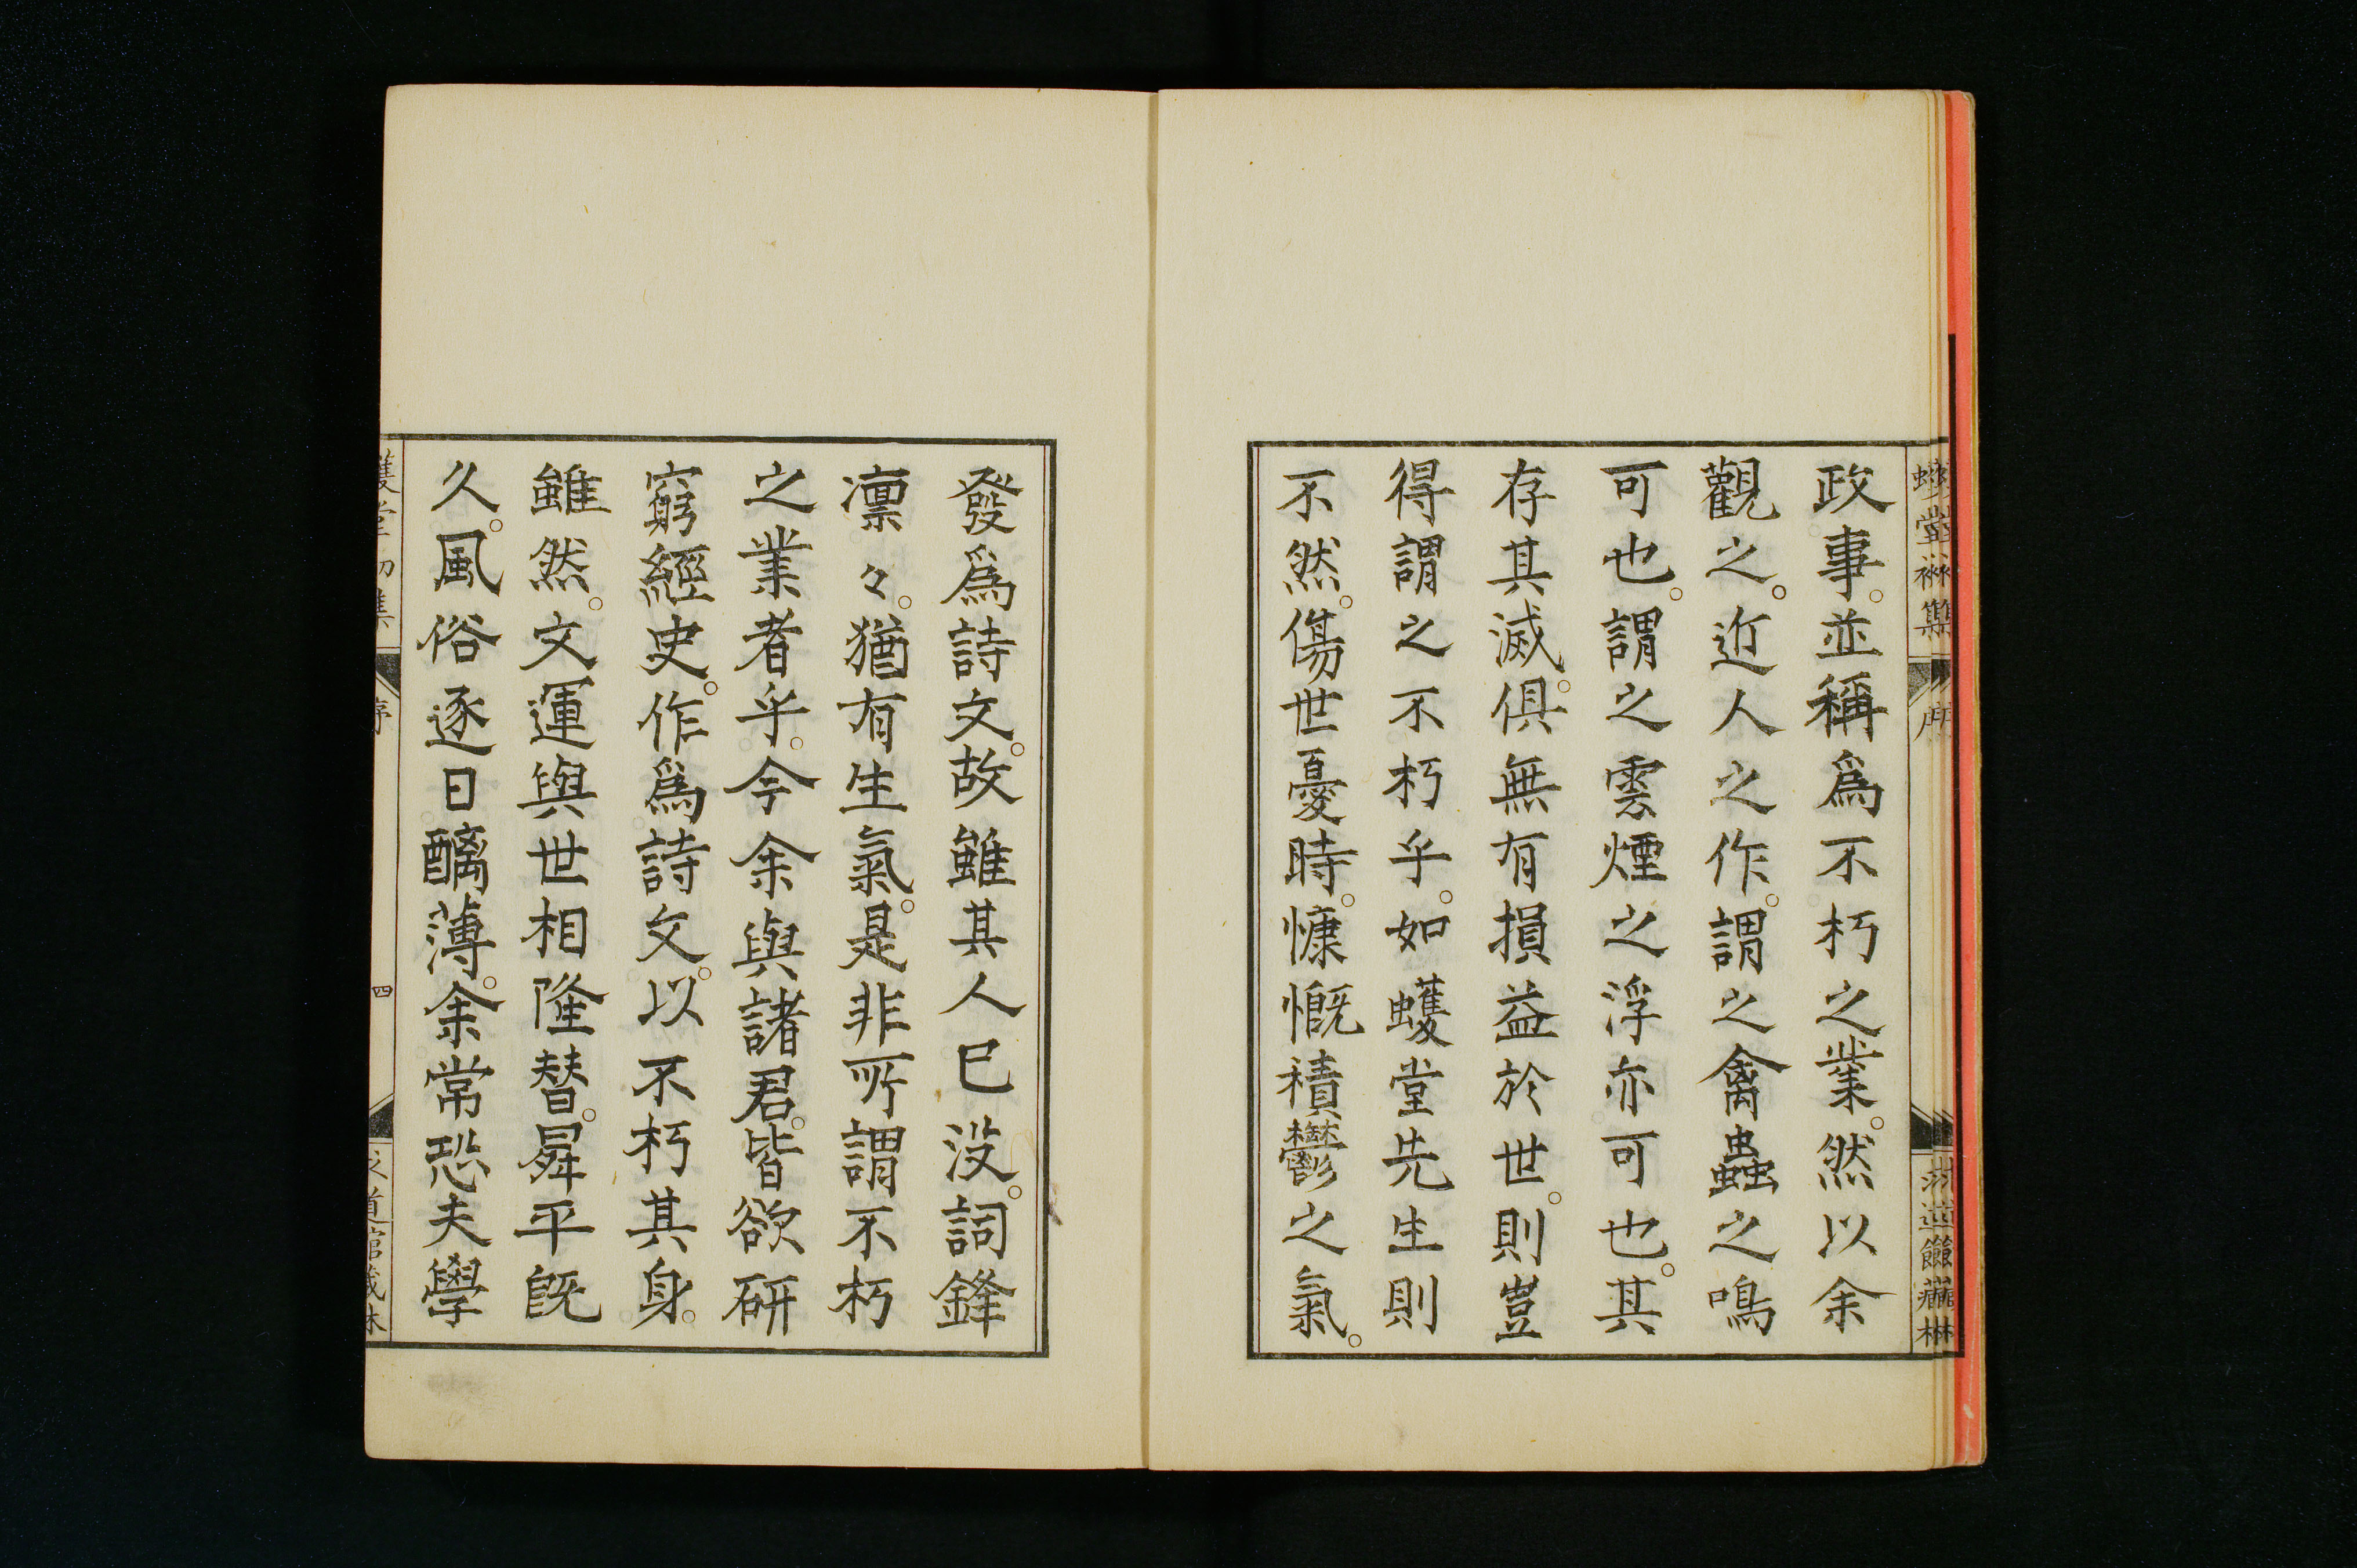 政事。並稱爲不朽之業。然以余
觀之。近人之作。謂之禽蟲之鳴
可也。謂之雲煙之浮亦可也。其
存其滅。俱無有損益於世。則豈
得謂之不朽乎。如蠖堂先生則
不然。傷世憂時。慷慨積鬱之氣。
發爲詩文。故雖其人已没。詞鋒
凛々。猶有生氣。是非所謂不朽
之業者乎。今余與諸君。皆欲研
窮經史。作爲詩文。以不朽其身。
雖然。文運與世相隆替。昇平既
久。風俗逐日醨薄。余常恐夫學
序
四